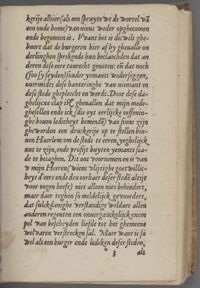 kerije alhier (als een spruyte wt de wortel vā
een oude bome) van niews weder opghecomen
ende begonnen is. Want het is dicwils ghe-
buert dat de burgeren hier af by ghevalle on
derlinghen sprekende hun beclaechden dat an
deren dese eere tonrecht genoten: en dat noch
(soo sy seyden) sonder yemants wederseggen,
overmidts dese hanteringhe van niemant in
dese stede ghepleecht en werdt. Door dese da-
ghelijcxe clachten ghevallen dat mijn mede-
ghesellen ende ick (die oyt eerlijcke oeffenin-
ghe boven ledicheyt beminde) van sinne zijn
gheworden een druckerije op te stellen bin-
nen Haerlem: om de stede te eeren, yeghelijck
nut te zijn, ende profijt buyten yemants scha-
de te bejaghen. Dit ons voornemen en is van
u mijn Heeren (wiens vlijtighe goetwillic-
heyt d'eere ende den oorbaer deser stede altijt
voor oogen heeft) niet alleen niet behindert,
maer daer teghen so mildelijck gevoordert,
dat sulckdanighe verstandege weldaet allen
anderen regenten een onverganckelijck exem
pel van besscheyden liefde tot het ghemeene
welvaren verstrecken sal. Maer want ic so
wel als een burger ende ledeken deser steden,
3 als